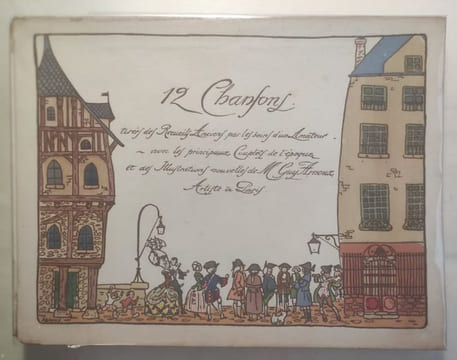 12 Chansons
tirées des Recueils Anciens par les soins d'un Amateur
avec les principaux Couplets de l'époque
et des Illustrations nouvelles de Mr Guy Arnoux
Artiste à Paris